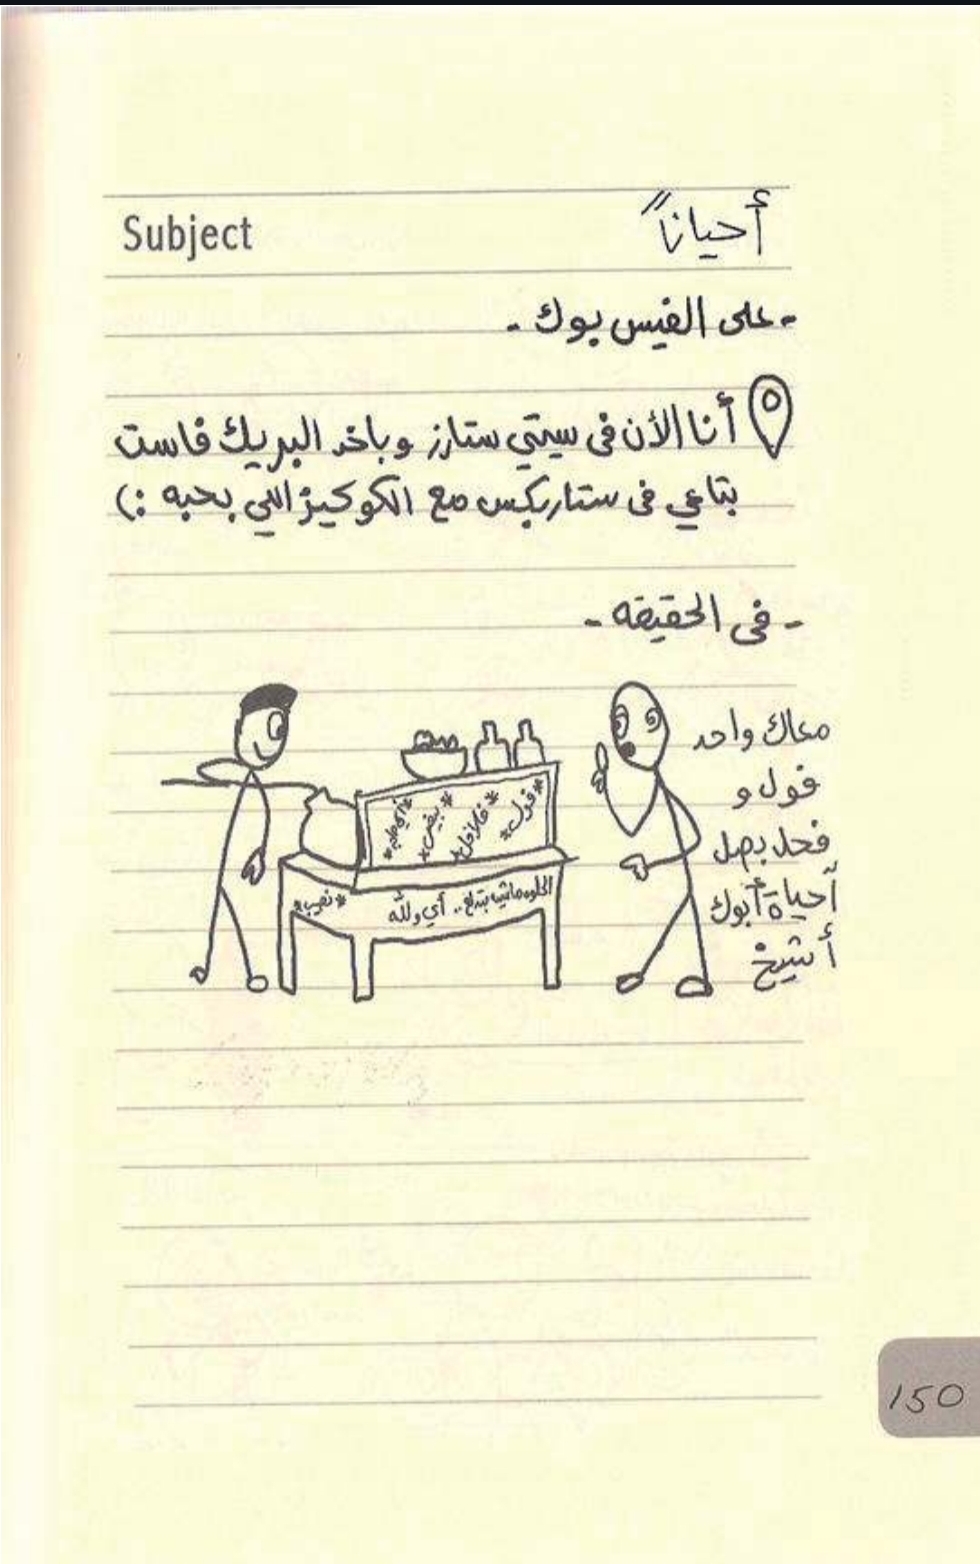 Subject
أحياناً
- على الفيس بوك -
أنا الأن فى سيتي ستارز وباخد البريك فاست
بتاعي فى ستاربكس مع الكوكيز اللي بحبه :)
- فى الحقيقه -
معاك واحد
فول و
فحل بصل
أحياة أبوك
أشيخ
*فول*
*فلافل*
*بيض*
الحلوه ماشيه بتدلع.. أي والله
150